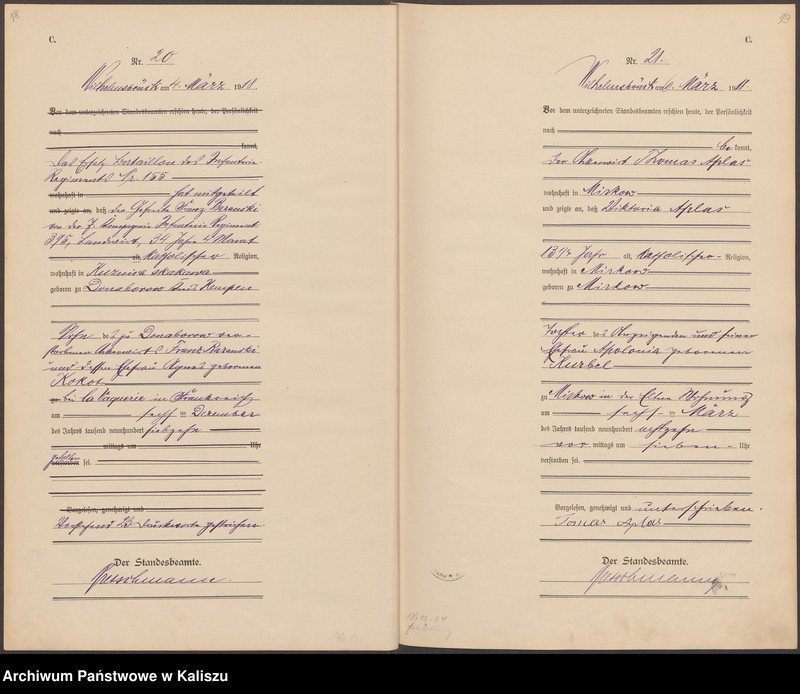 18
C.
Nr. 20
Wilhelmsbrück am 4. März 1918.
Vor dem unterzeichneten Standesbeamten erschien heute, der Persönlichkeit
nach
kannt,
Das Ersatz Bataillon des Infanterie
Regiments Nr. 155
wohnhaft in hat mitgeteilt
und zeigte an, daß der Gefreite Franz
von der 7. Kompagnie Infanterie Regiment
395, Landwirt, 34 Jahre 4 Monat
alt, katholischer Religion,
wohnhaft in Kuznica
geboren zu Donaborow Kreis Kempen
Sohn des zu Donaborow ver-
storbenen Ackerwirts Franz
und dessen Ehefrau Agnes geborenen
Kokot
zu bei la in Frankreich
am sechs ten Dezember
des Jahres tausend neunhundert siebzehn
mittags um Uhr
gefallen
verstorben sei.
Vorgelesen, genehmigt und
Vorstehend Druckworte gestrichen.
Der Standesbeamte.
19
C.
Nr. 21.
Wilhelmsbrück am März 1918.
Vor dem unterzeichneten Standesbeamten erschien heute, der Persönlichkeit
nach
be kannt,
der Ackerwirt Thomas Aplas
wohnhaft in Mirkow
und zeigte an, daß Viktoria Aplas
13¾ Jahr alt, katholischer Religion,
wohnhaft in Mirkow
geboren zu Mirkow
Tochter des Anzeigenden und seiner
Ehefrau Apolonia geborenen
Kurbel
zu Mirkow in der Eltern Wohnung
am sechs ten März
des Jahres tausend neunhundert achtzehn
vor mittags um sieben Uhr
verstorben sei.
Vorgelesen, genehmigt und unterschrieben.
Tomas Aplas
Der Standesbeamte.
Archiwum Państwowe w Kaliszu